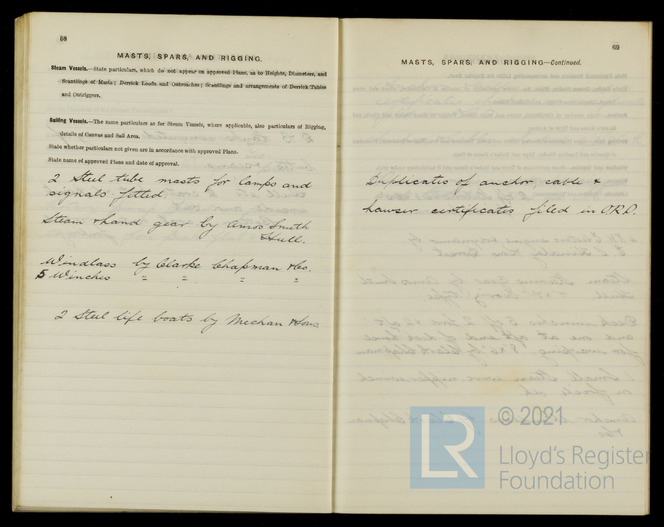 68
MASTS, SPARS, AND RIGGING.
Steam Vessels.—State particulars, which do not appear on approved Plans, as to Heights, Diameters, and
Scantlings of Masts; Derrick Loads and Outreaches; Scantlings and arrangements of Derrick Tables
and Outriggers.
Sailing Vessels.—The same particulars as for Steam Vessels, where applicable, also particulars of Rigging,
details of Canvas and Sail Area.
State whether particulars not given are in accordance with approved Plans.
State name of approved Plans and date of approval.
2 Steel tube masts for lamps and
signals fitted.
Steam & hand gear by Amos Smith
Hull.
Windlass by Clarke Chapman & Co.
5 Winches " " " "
2 Steel life boats by Mechan & Sons
69
MASTS, SPARS, AND RIGGING—Continued.
Duplicates of anchor, cable &
hawser certificates filed in O.R.D.
LR © 2021
Lloyd's Register
Foundation